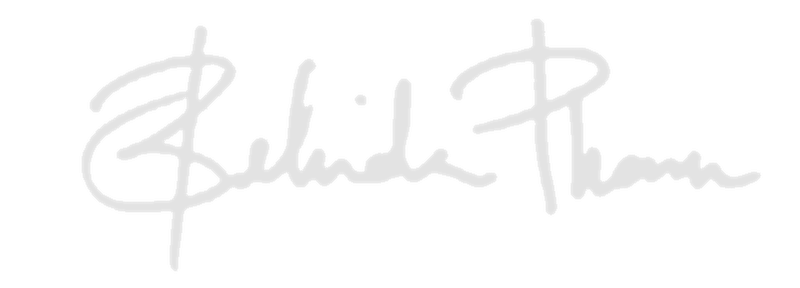 Belinda Pham